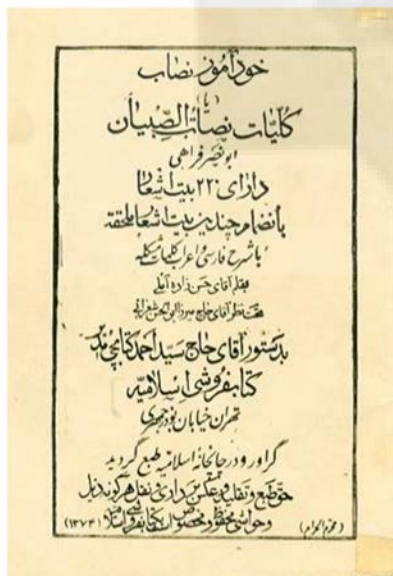 خودآموز نصاب
یا
کلیّات نصابُ الصِّبیان
ابونصر فراهی
دارای ۲۲۰ بیت اشعار
بانضمام چندین بیت اشعار ملحقه
باشرح فارسی و اعراب کلمات مشکله
بقلم آقای حسن زاده آملی
تحت نظر آقای حاج میرزا ابوالحسن شعرانی
بدستور آقای حاج سید احمد کتابچی مدیر
کتابفروشی اسلامیه
تهران خیابان بوذرجمهری
گراور و در چاپخانهٔ اسلامیه طبع گردید
حق طبع و تقلید و عکس برداری و نقل هرگونه ذیل
و حواشی محفوظ و مخصوص است بکتابفروشی اسلامیه
(محرم الحرام) (۱۳۷۳)